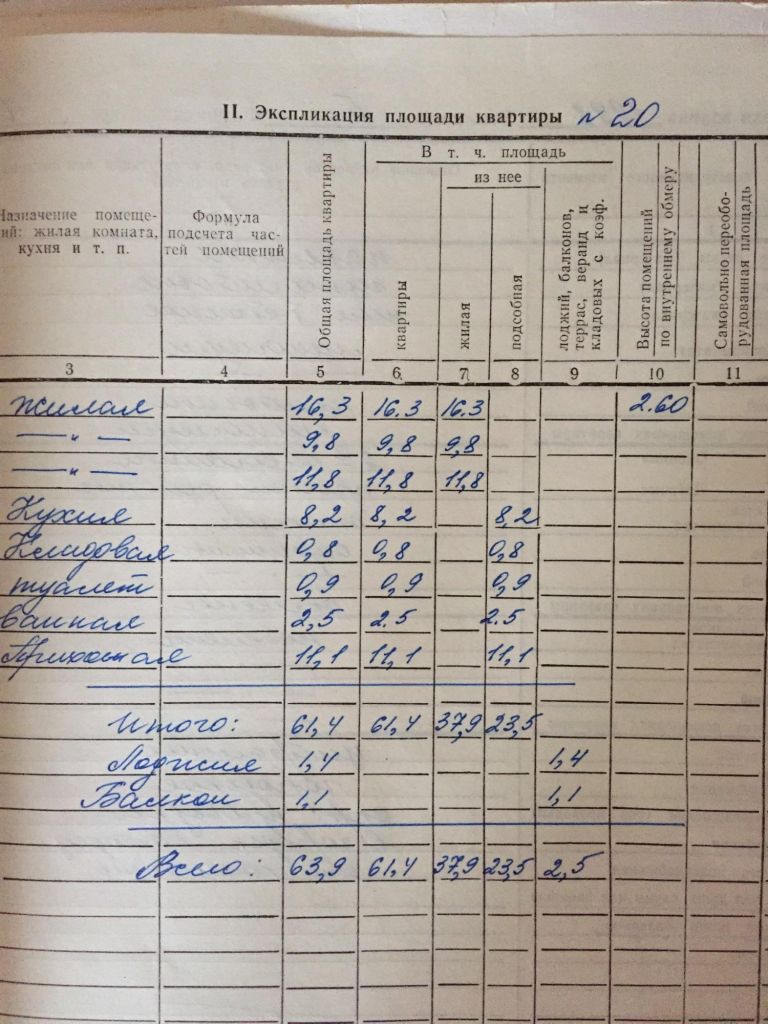 II. Экспликация площади квартиры № 20
В т. ч. площадь
из нее
Назначение помеще-
ний: жилая комната,
кухня и т. п.
Формула
подсчета час-
тей помещений
Общая площадь квартиры
квартиры
жилая
подсобная
лоджий, балконов,
террас, веранд и
кладовых с коэф.
Высота помещений
по внутреннему обмеру
Самовольно переобо-
рудованная площадь
3 4 5 6 7 8 9 10 11
жилая 16,3 16.3 16.3 2.60
— " — 9,8 9,8 9,8
— " — 11,8 11,8 11,8
Кухня 8,2 8,2 8,2
Кладовая 0,8 0,8 0,8
туалет 0,9 0,9 0,9
ванная 2,5 2.5 2.5
Прихожая 11,1 11,1 11,1
Итого: 61,4 61,4 37,9 23,5
Лоджия 1,4 1,4
Балкон 1,1 1,1
Всего: 63,9 61,4 37,9 23,5 2,5